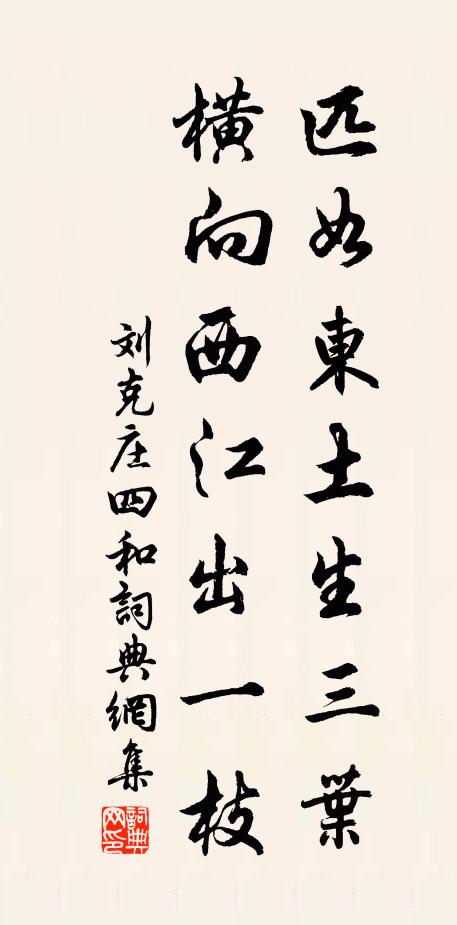 匹如東土生三葉
橫向西江出一枝
刘克庄四和詞典網集
詞典網印